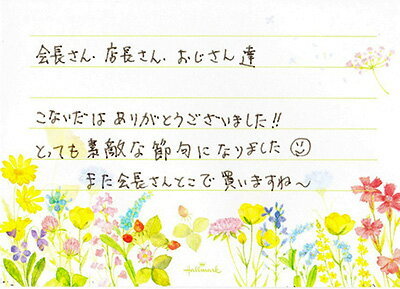 会長さん、店長さん、おじさん達
こないだは ありがとうございました!!
とっても素敵な節句になりました☺
また会長さんとこで買いますね〜
Hallmark